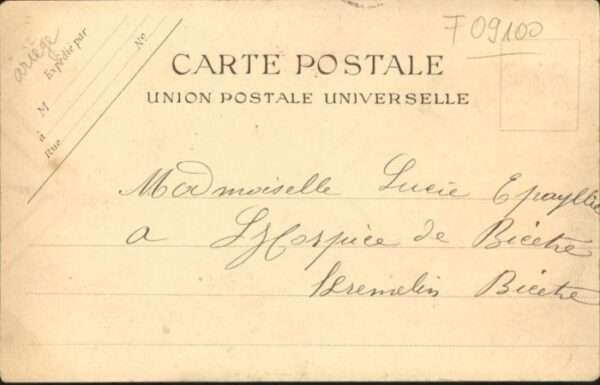 ariège
Expédié par
No
M
à
Rue
F 09100
CARTE POSTALE
UNION POSTALE UNIVERSELLE
Madmoiselle Lucie
a L'Hospice de Bicetre
Kremelin Bicetre